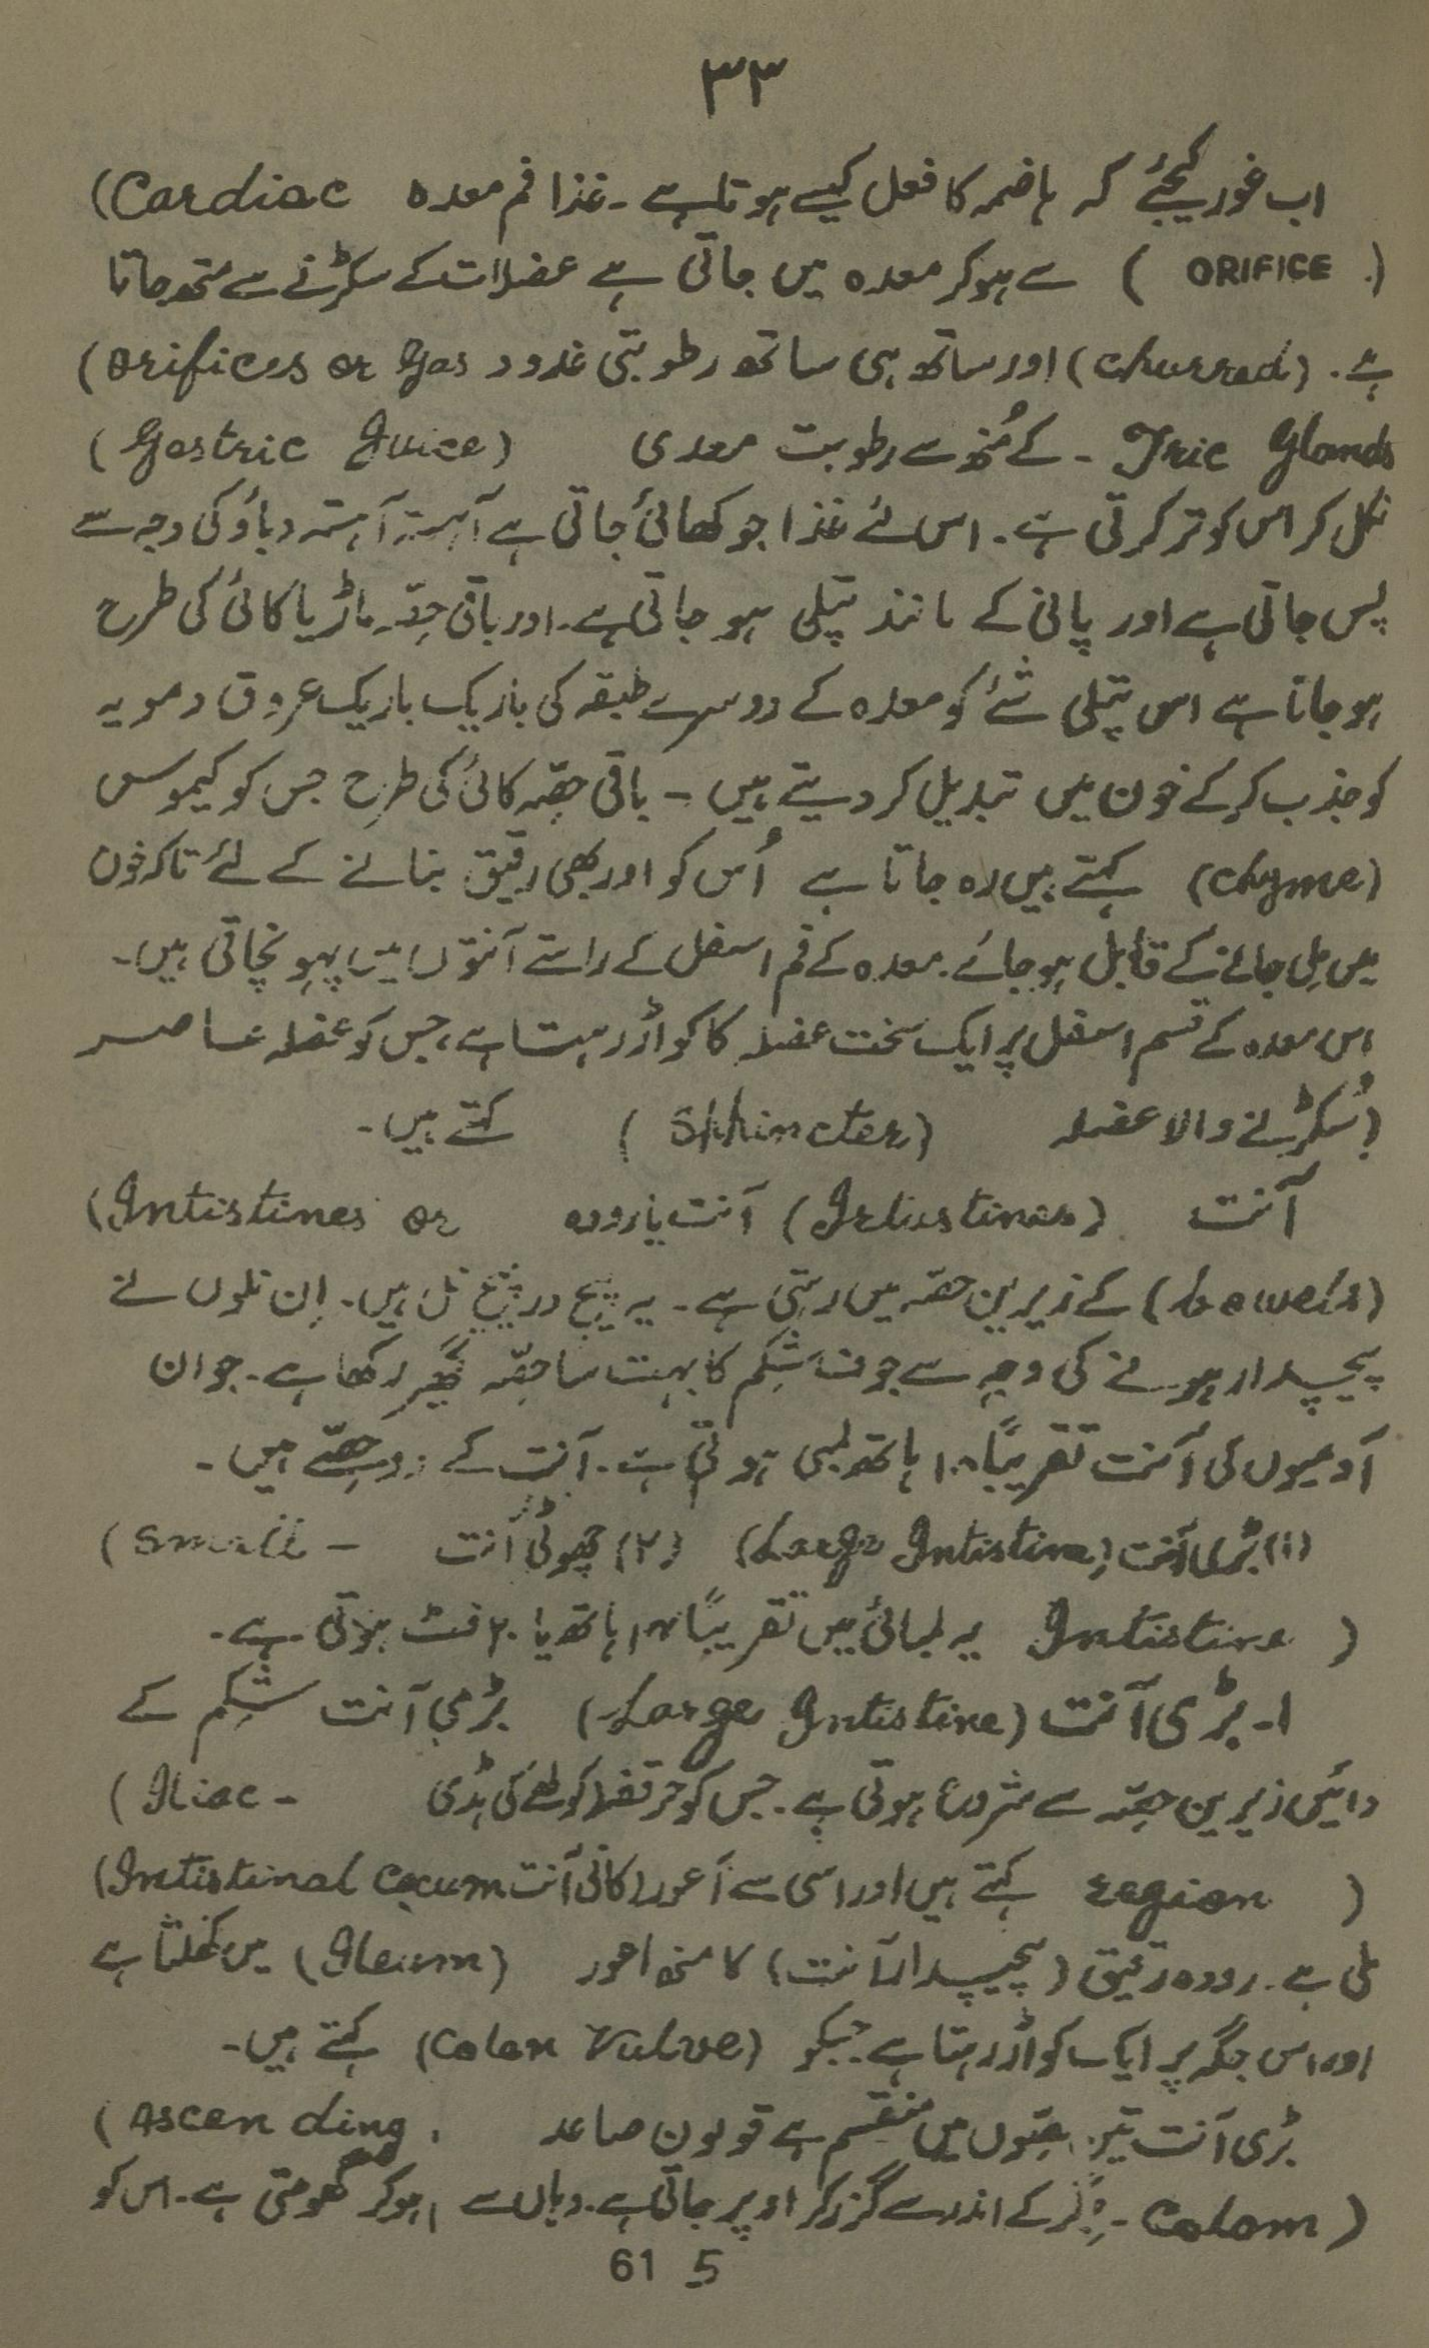 ۳۳
اب غور کیجئے کہ ہاضمہ کا فعل کیسے ہوتا ہے ۔ غذا فم معدہ (Cardiac
ORIFICE ) سے ہوکر معدہ میں جاتی ہے عضلات کے سکڑنے سے متھ جاتا
ہے ۔ (churred) اور ساتھ ہی ساتھ رطوبتی غدود (Orifices or Gas
Tric Glands ۔ کے مُنھ سے رطوبت معدی (Gastric Juice)
نکل کر اس کو تر کرتی ہے ۔ اس لئے غذا جو کھائی جاتی ہے آہستہ آہستہ دباؤ کی وجہ سے
پس جاتی ہے اور پانی کے مانند پتلی ہو جاتی ہے ۔ اور باقی حصّہ ماڑ یا کائی کی طرح
ہو جاتا ہے اس پتلی شئے کو معدہ کے دوسرے طبقہ کی باریک باریک عروق دمویہ
کو جذب کرکے خون میں تبدیل کر دیتے ہیں ۔ باقی حصّہ کائی کی طرح جس کو کیموس
(Chyme) کہتے ہیں رہ جاتا ہے اُس کو اور بھی رقیق بنانے کے لئے تاکہ خون
میں مِل جانے کے قابل ہو جائے ۔ معدہ کے فم اسفل کے راستے آنتوں میں پہونچاتی ہیں ۔
اس معدہ کے قسم اسفل پر ایک سخت عضلہ کا کواڑ رہتا ہے ، جس کو عضلہ عاصر
(سُکڑنے والا عضلہ (Shhincter) کہتے ہیں ۔
آنت (Intustines) آنت یا رودہ (Intistines or
bowels) کے زیرین حصّہ میں رہتی ہے ۔ یہ پیچ در پیچ نل ہیں ۔ اِن نلوں نے
پیچیدار ہونے کی وجہ سے جوف شِکم کا بہت سا حصّہ گھیر رکھا ہے ۔ جوان
آدمیوں کی آنت تقریباً ۱۸ ہاتھ لمبی ہوتی ہے ۔ آنت کے دو حصّے ہیں ۔
(۱) بڑی آنت (Large Intistine) (۲) چھوٹی آنت (Small –
Intistine ) یہ لمبائی میں تقریباً ۱۴ ہاتھ یا ۲۰ فٹ ہوتی ہے ۔
۱۔ بڑی آنت (Large Intistine) بڑی آنت شِکم کے
دائیں زیرین حصّہ سے شروع ہوتی ہے ۔ جس کو حرقفہ کولھے کی ہڈی (Iliac -
region ) کہتے ہیں اور اسی سے اَعور کانی آنت (Intistinal Cecum
ملی ہے ۔ رودہ رقیق (پیچیدار آنت) کا منھ اعور (Ileum) میں کُھلتا ہے
اور اس جگہ پر ایک کواڑ رہتا ہے جسکو (Colon Vulve) کہتے ہیں ۔
بڑی آنت تین حصّوں میں منقسم ہے قولون صاعد (Ascending
Colom ) ۔ جِگر کے اندر سے گزر کر اوپر جاتی ہے ۔ وہاں سے ہوکر گھومتی ہے ۔ اس کو
61 5